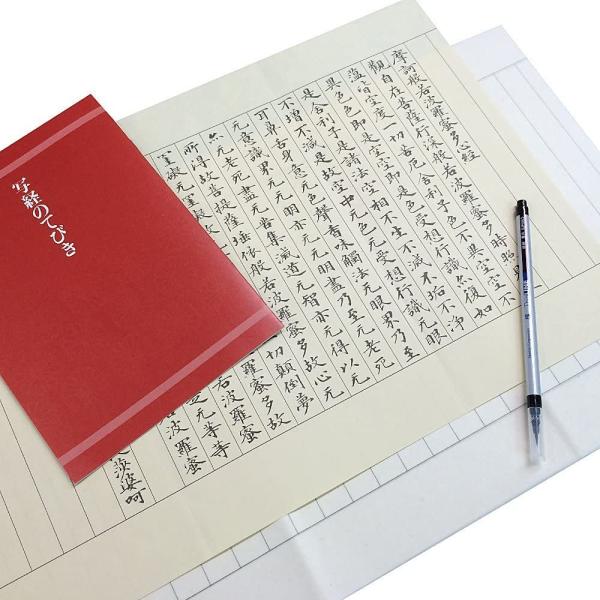 写経のてびき
摩訶般若波羅蜜多心經
觀自在菩薩行深般若波羅蜜多時照
蘊皆空度一切苦厄舍利子色不異空空不
異色色即是空空即是色受想行識亦復如
是舍利子是諸法空相不生不滅不垢不净
不增不減是故空中无色无受想行識无眼
耳鼻舌身意无色聲香味觸法无眼界乃至
无意識界无无明亦无无明盡乃至无老死
亦无老死盡无苦集滅道无智亦无得以无
所得故菩提薩埵依般若波羅蜜多故心无
罣礙无罣礙故 切顛倒夢
若波羅蜜多故
若波羅蜜
无等等
波羅蜜
婆呵